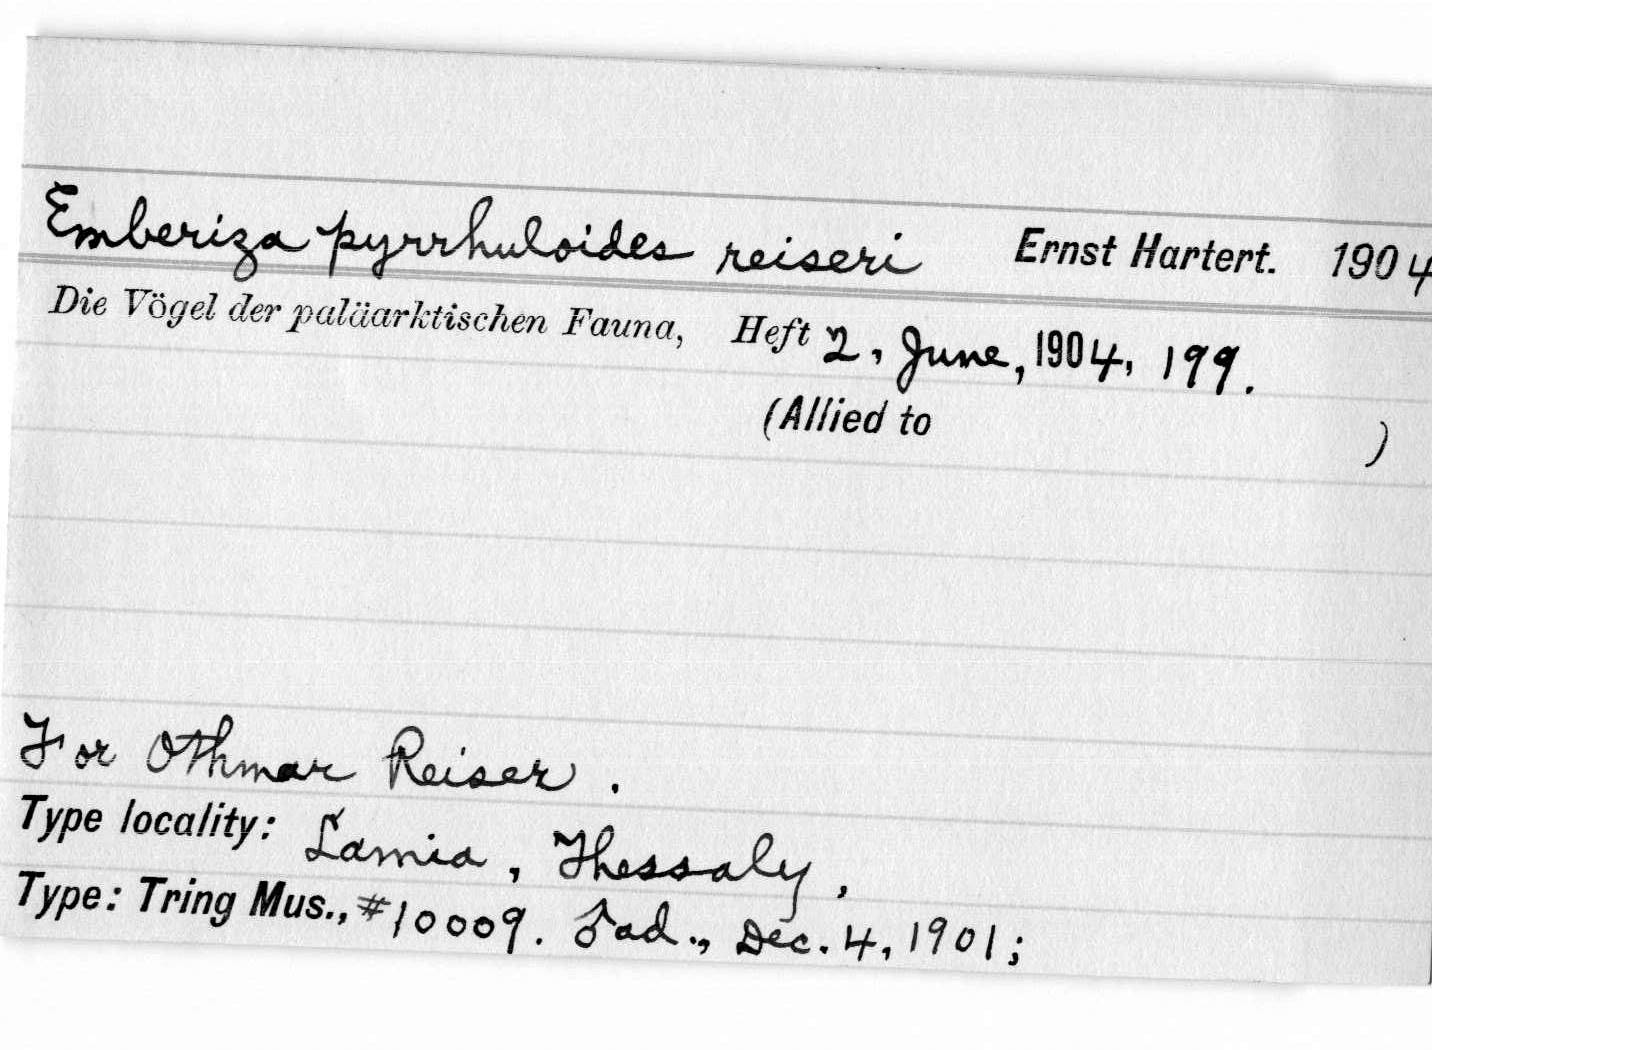 Emberiza pyrrhuloides reiseri Ernst Hartert. 1904
Die Vögel der paläarktischen Fauna, Heft 2, June, 1904, 199.
(Allied to )
For Othmar Reiser.
Type locality: Lamia, Thessaly,
Type: Tring Mus., #10009. ♂ad., Dec. 4, 1901;